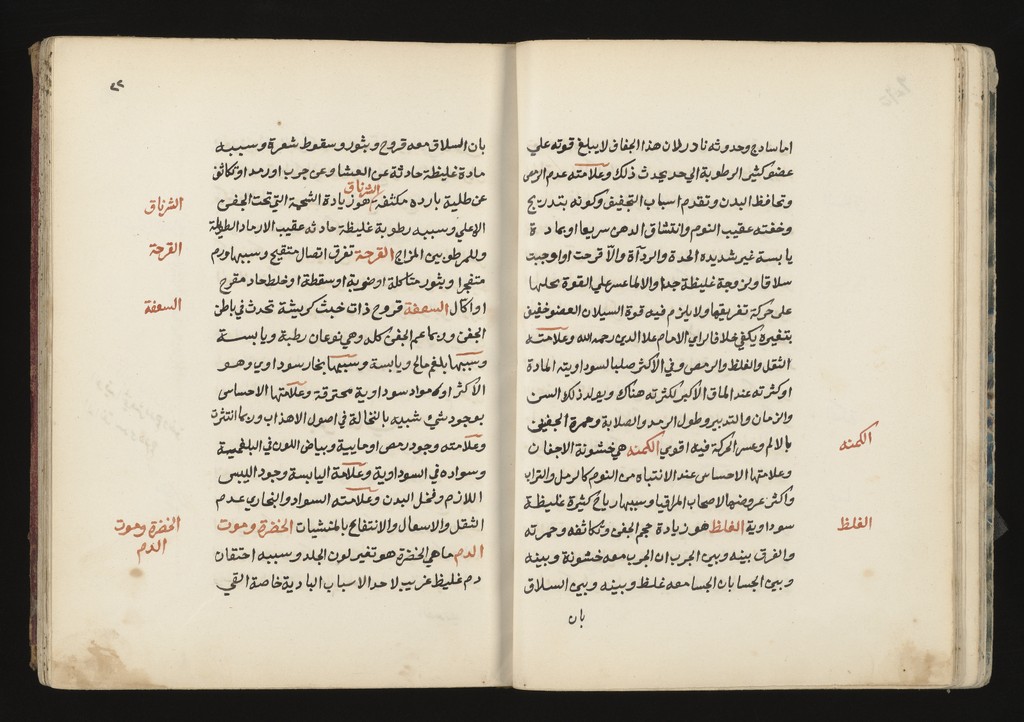 اما ساذج وحدوثه نادر لان هذا الجفاف لا يبلغ قوته علي
عضو كثير الرطوبة الي حد يحدث ذلك وعلامته عدم الرمص
وتحافظ البدن وتقدم اسباب التجفيف وكونه بتدريج
وخفته عقيب النوم وانتشاق الدهن سريعا او بمادة
يابسة غير شديده الحدة والردآة والا قرحت او اوجبت
سلاقا ولزوجة غليظة جدا والا لما عسر علي القوة تحليلها
علي حركة تفريقها ولا يلزم فيه قوة السيلان العضو خفيف
بتغيره يكفي خلافا لراي الامام علا الدين رحمه الله وعلامته
الثقل والغلظ والرمص وفي الاكثر صلبا لسوداويته المادة
او كثرته عند الماق الاكبر لكثرته هناك ويولد ذلك السن
والزمان والتدبير وطول الرمد والصلابة وحمرة الجفن
بالالم وعسر الحركة فيه اقوي الكمنه هي خشونة الاجفان
وعلامتها الاحساس عند الانتباه من النوم كالرمل والتراب
واكثر عروضها لاصحاب المراقيا وسببها رياح كثيرة غليظة
سوداوية الغلظ هو زيادة حجم الجفن وتكاثفه وحمرته
والفرق بينه وبين الجرب ان الجرب معه خشونة وبينه
وبين الجسا بان الجسا معه غلظ وبينه وبين السلاق
بان
الكمنه
الغلظ
٢٢
بان السلاق معه قروح وبثور وسقوط شعرة وسببه
مادة غليظة حادثة عن العشا وعن جرب او رمد او تكاثف
عن طلية بارده مكثفه الشرناق هو زيادة الشحمة التي تحت الجفن
الاعلي وسببه رطوبة غليظة حادثه عقيب الارماد الطويلة
وللمرطوبين المزاج القرحة تفرق اتصال متقيح وسببها ورم
منفجر او بثور متاكلة او ضربة او سقطة او خلط حاد مقرح
او اكال السعفة قروح ذات خبث كريشة تحدث في باطن
الجفن وربما عم الجفن كله وهي نوعان رطبة ويابسة
وسببها بلغم مالح ويابسة وسببها بخار سوداوي وهو
الاكثر او مواد سوداوية محترقة وعلامتها الاحساس
بوجود شي شبيه بالنخالة في اصول الاهداب وربما انتثرت
وعلامته وجود رمص او حابية وبياض اللون في البلغمية
وسواده في السوداوية وعلامة اليابسة وجود اليبس
اللازم وقحل البدن وعلامته السواد والبخاري عدم
الثقل والاسهال والانتفاع بالمنشيات الخضرة وموت
الدم ماهي الخضرة هو تغير لون الجلد وسببه احتقان
دم غليظ غريب لاحد الاسباب البادية خاصة القي
الشرناق
القرحة
السعفة
الخضرة وموت
الدم